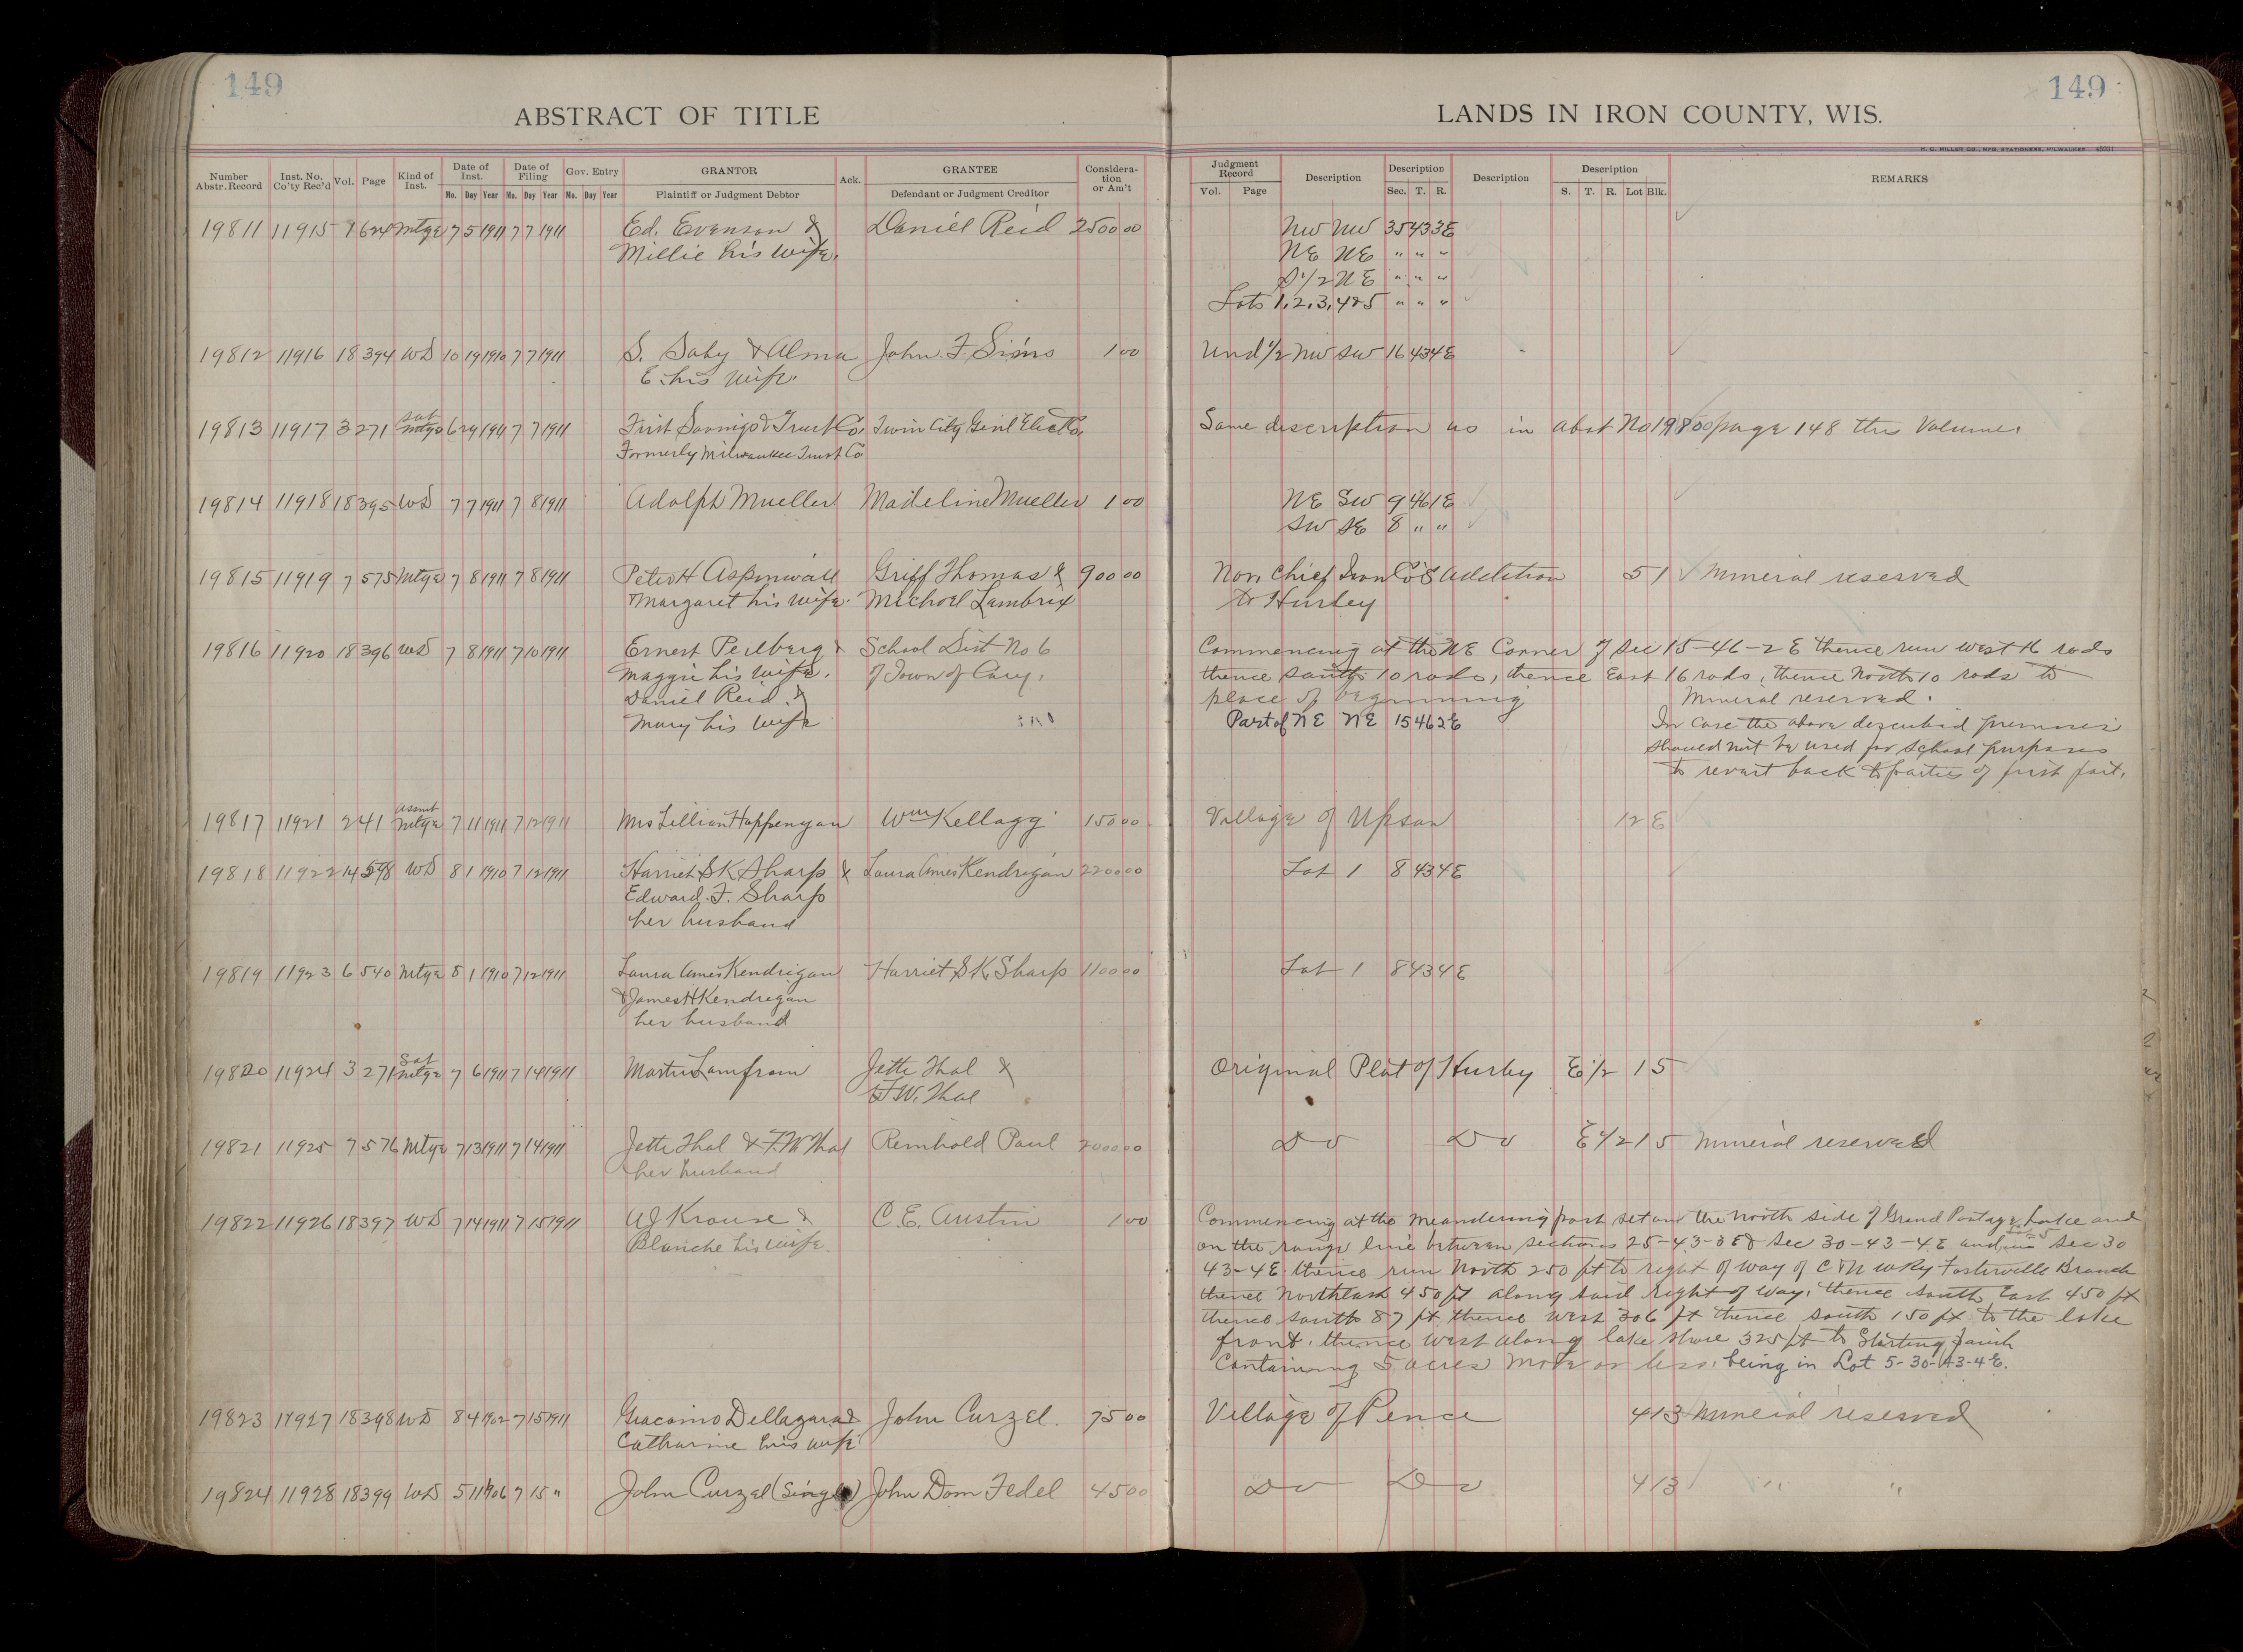 149
ABSTRACT OF TITLE
149
LANDS IN IRON COUNTY, WIS.
H. G. MILLER CO., MFG. STATIONERS, MILWAUKEE
Number Abstr. Record Inst. No. Co'ty Rec'd Vol. Page Kind of Inst. Date of Inst. Mo. Day Year Date of Filing Mo. Day Year Gov. Entry Mo. Day Year GRANTOR Plaintiff or Judgment Debtor Ack. GRANTEE Defendant or Judgment Creditor Considera-tion or Am't
Judgment Record Vol. Page Description Description Sec. T. R. Description Description S. T. R. Lot Blk. REMARKS
19811 11915 7 624 Mtge 7 5 1911 7 7 1911 Ed. Evenson & Daniel Reid 2500 00 NW NW 35 43 3E
Millie his wife. NE NE " " "
S 1/2 NE " " "
Lots 1, 2, 3, 4 & 5 " " "
19812 11916 18 394 WD 10 19 1910 7 7 1911 S. Saby & Alma John F Sims 1 00 Und 1/2 NW SW 16 43 4E
E. his wife.
19813 11917 3 271 Sat Mtge 6 29 1911 7 7 1911 First Savings & Trust Co. Twin City Genl Elec Co. Same description as in abst No 19800 page 148 this Volume.
Formerly Milwaukee Trust Co
19814 11918 18 395 WD 7 7 1911 7 8 1911 Adolph Mueller Madeline Mueller 1 00 NE SW 9 46 1E
SW SE 8 " "
19815 11919 7 575 Mtge 7 8 1911 7 8 1911 Peter H Aspinwall Griff Thomas & 900 00 Nor, Chief Iron Co's Addition 5 1 Mineral reserved
& Margaret his wife. Michael Lambrix to Hurley
19816 11920 18 396 WD 7 8 1911 7 10 1911 Ernest Perlberg & School Dist No 6 Commencing at the NE Corner of Sec 15-46-2 E thence run west 16 rods
Maggie his wife. of Town of Cary. thence south 10 rods, thence East 16 rods, thence North 10 rods to
Daniel Reid & place of beginning Mineral reserved.
Mary his wife Part of NE NE 15 46 2E In case the above dezcribed premises
should not be used for school purposes
to revert back to parties of first part.
19817 11921 2 41 Assmt Mtge 7 11 1911 7 12 1911 Mrs Lillian Happenyan Wm Kellogg 150 00 Village of Upson 12 E
19818 11922 14 598 WD 8 1 1910 7 12 1911 Harriet S K Sharp & Laura Ames Kendrigan 2200 00 Lot 1 8 43 4E
Edward F. Sharp
her husband
19819 11923 6 540 Mtge 8 1 1910 7 12 1911 Laura Ames Kendrigan Harriet S K Sharp 1100 00 Lot 1 8 43 4E
& James H Kendrigan
her husband
19820 11924 3 271 Sat Mtge 7 6 1911 7 14 1911 Martin Lamfrom Jette Thal & Original Plat of Hurley E 1/2 1 5
F W. Thal
19821 11925 7 576 Mtge 7 13 1911 7 14 1911 Jette Thal & F. W Thal Reinhold Paul 2000 00 Do Do E 1/2 1 5 Mineral reserved
her husband
19822 11926 18 397 WD 7 14 1911 7 15 1911 A J Krause & C. E. Austin 1 00 Commencing at the meandering post set on the north side of Grand Portage Lake and
Blanche his wife. on the range line between sections 25-43-3 E & Sec 30-43-4 E and Sec 30
43-4E. thence run North 250 ft to right of way of C & N W Ry Fosterville Branch
thence Northeast 450 ft along said right of way, thence south East 450 ft
thence south 87 ft, thence west 306 ft thence south 150 ft to the lake
front, thence west along lake shore 325 ft to Starting
Containing 5 acres more or less. being in Lot 5-30-43-4E.
19823 11927 18 398 WD 8 4 1902 7 15 1911 Giacomo Dellagara & John Curzel. 75 00 Village of Pence 4 13 Mineral reserved
Catharine his wife
19824 11928 18 399 WD 5 11 1906 7 15 " John Curzel (Single) John Dom Fedel 45 00 Do Do 4 13 " "